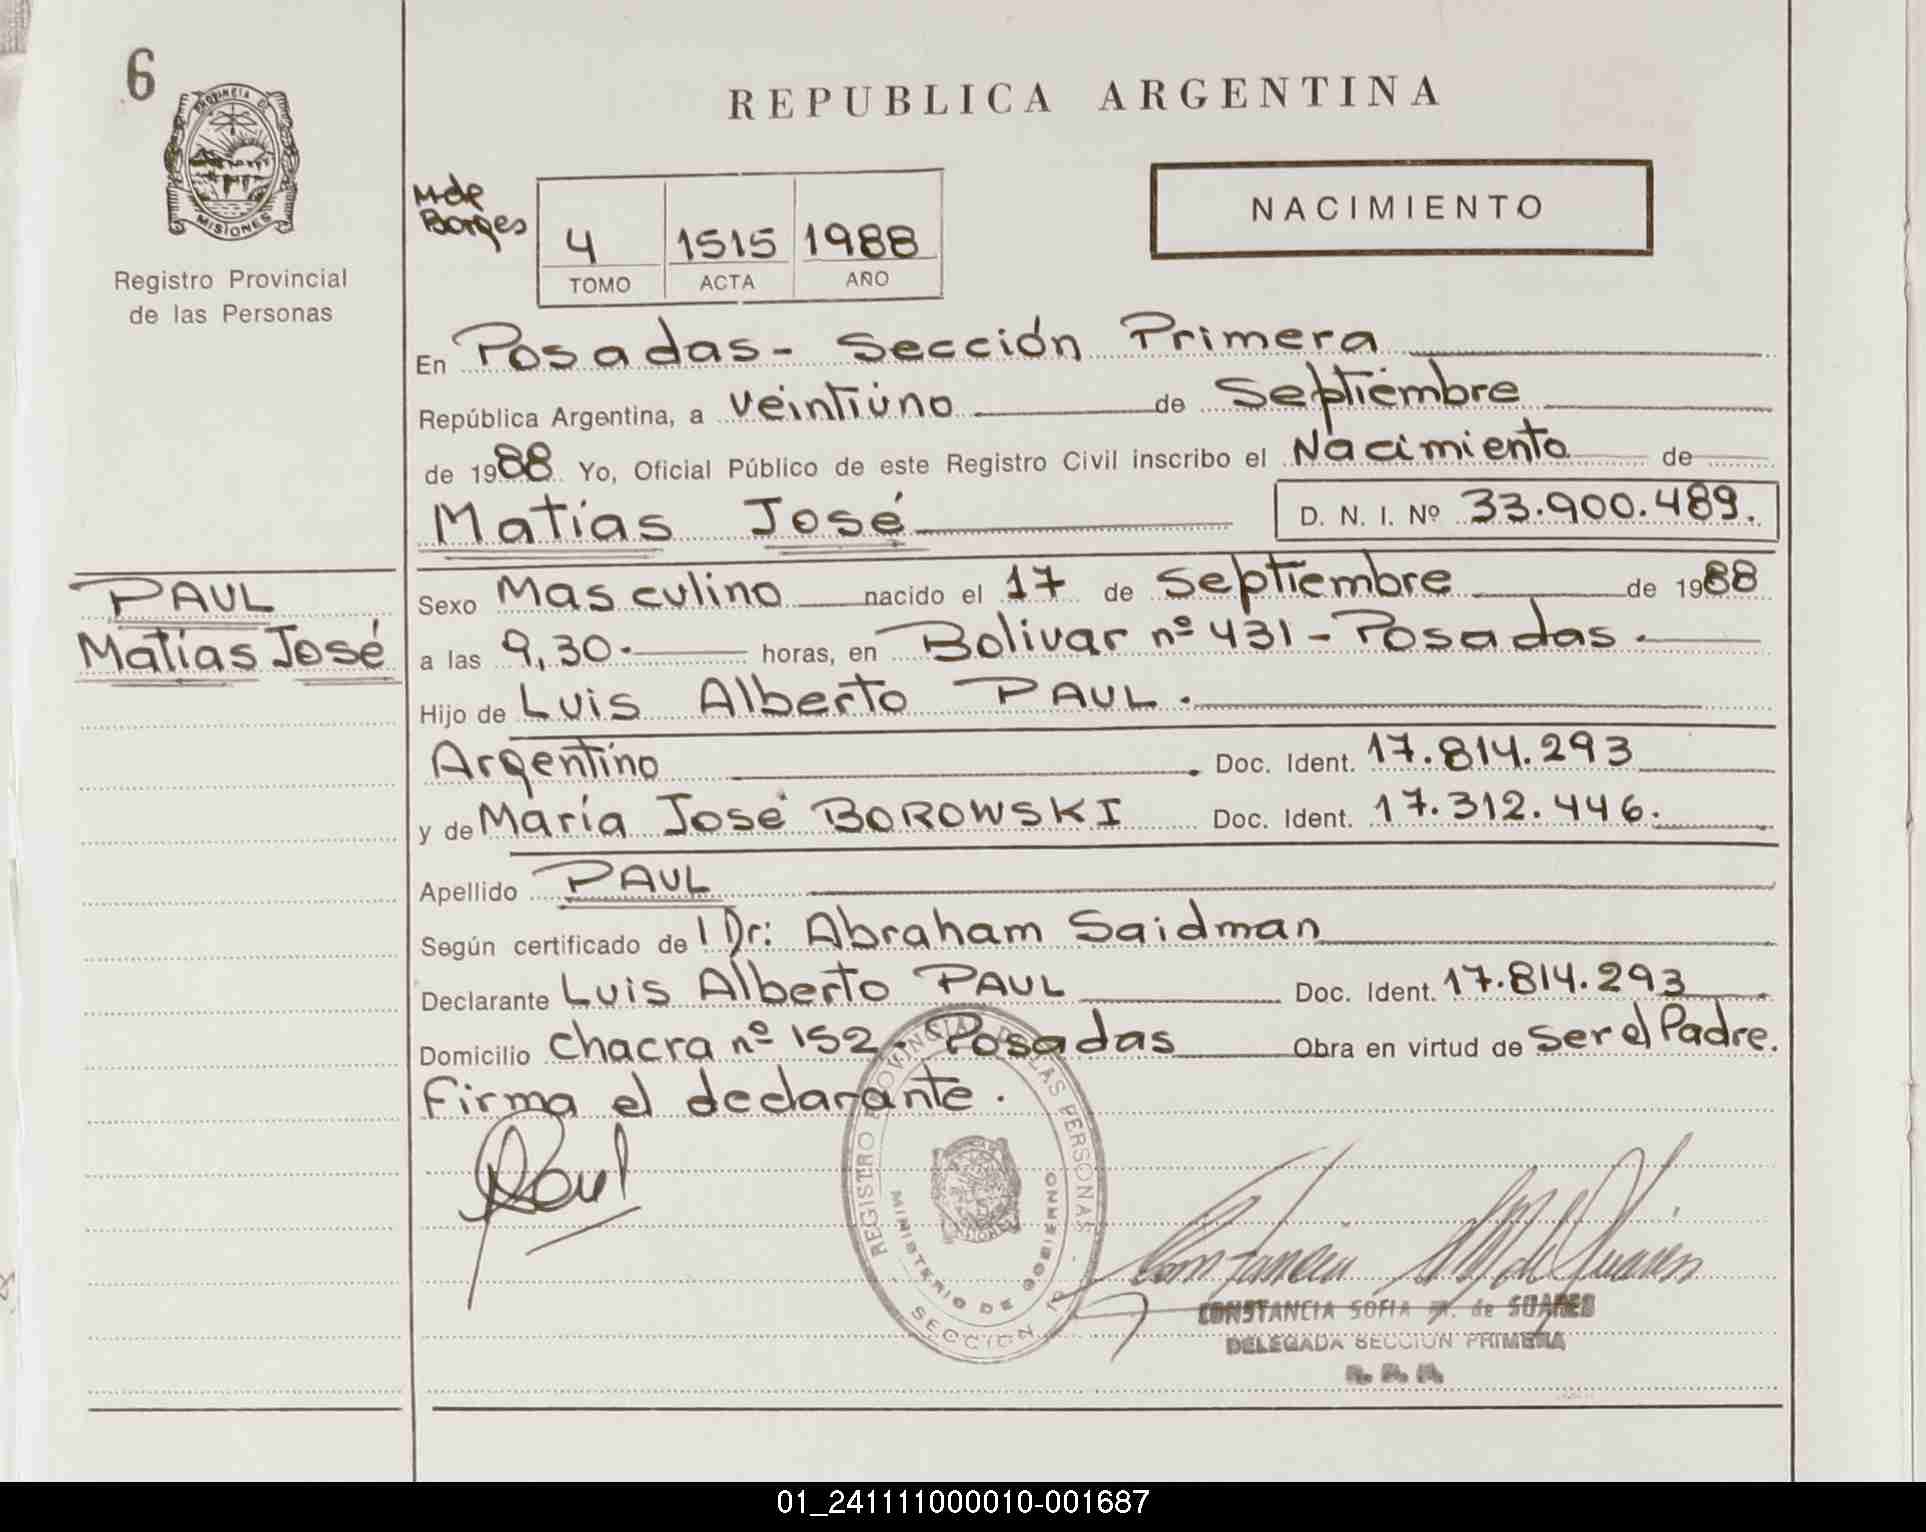 6
PROVINCIA DE
MISIONES
Registro Provincial
de las Personas
REPUBLICA ARGENTINA
M de
Borges
4 1515 1988
TOMO ACTA AÑO
NACIMIENTO
En Posadas - Sección Primera
República Argentina, a veintiuno de Septiembre
de 1988 Yo, Oficial Público de este Registro Civil inscribo el Nacimiento de
Matías José D. N. I. Nº 33.900.489.
PAUL
Matías José
Sexo Masculino nacido el 17 de Septiembre de 1988
a las 9,30. horas, en Bolivar nº 431 - Posadas.
Hijo de Luis Alberto PAUL.
Argentino Doc. Ident. 17.814.293
y de María José BOROWSKI Doc. Ident. 17.312.446.
Apellido PAUL
Según certificado de l Dr: Abraham Saidman
Declarante Luis Alberto PAUL Doc. Ident. 17.814.293
Domicilio chacra nº 152. Posadas Obra en virtud de ser el Padre.
Firma el declarante.
REGISTRO PROVINCIAL DE LAS PERSONAS
MINISTERIO DE GOBIERNO
SECCION 1ª
CONSTANCIA SOFIA M. de SUARES
DELEGADA SECCION PRIMERA
01_241111000010-001687